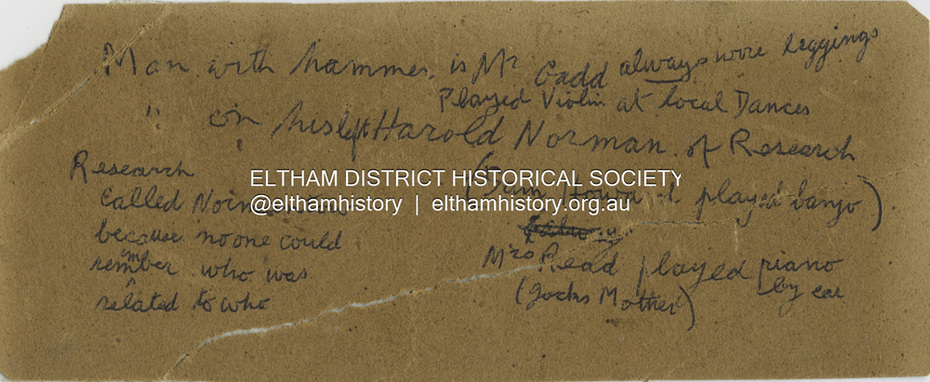 Man with hammer, is Mr Gadd always wore leggings
Played Violin at local Dances
" on his left Harold Norman of Research
(Jim Howard played banjo).
Mrs Read played piano
by ear
(Jocks Mother)
Research
called
because no one could
remember who was
related to who
ELTHAM DISTRICT HISTORICAL SOCIETY
@elthamhistory | elthamhistory.org.au